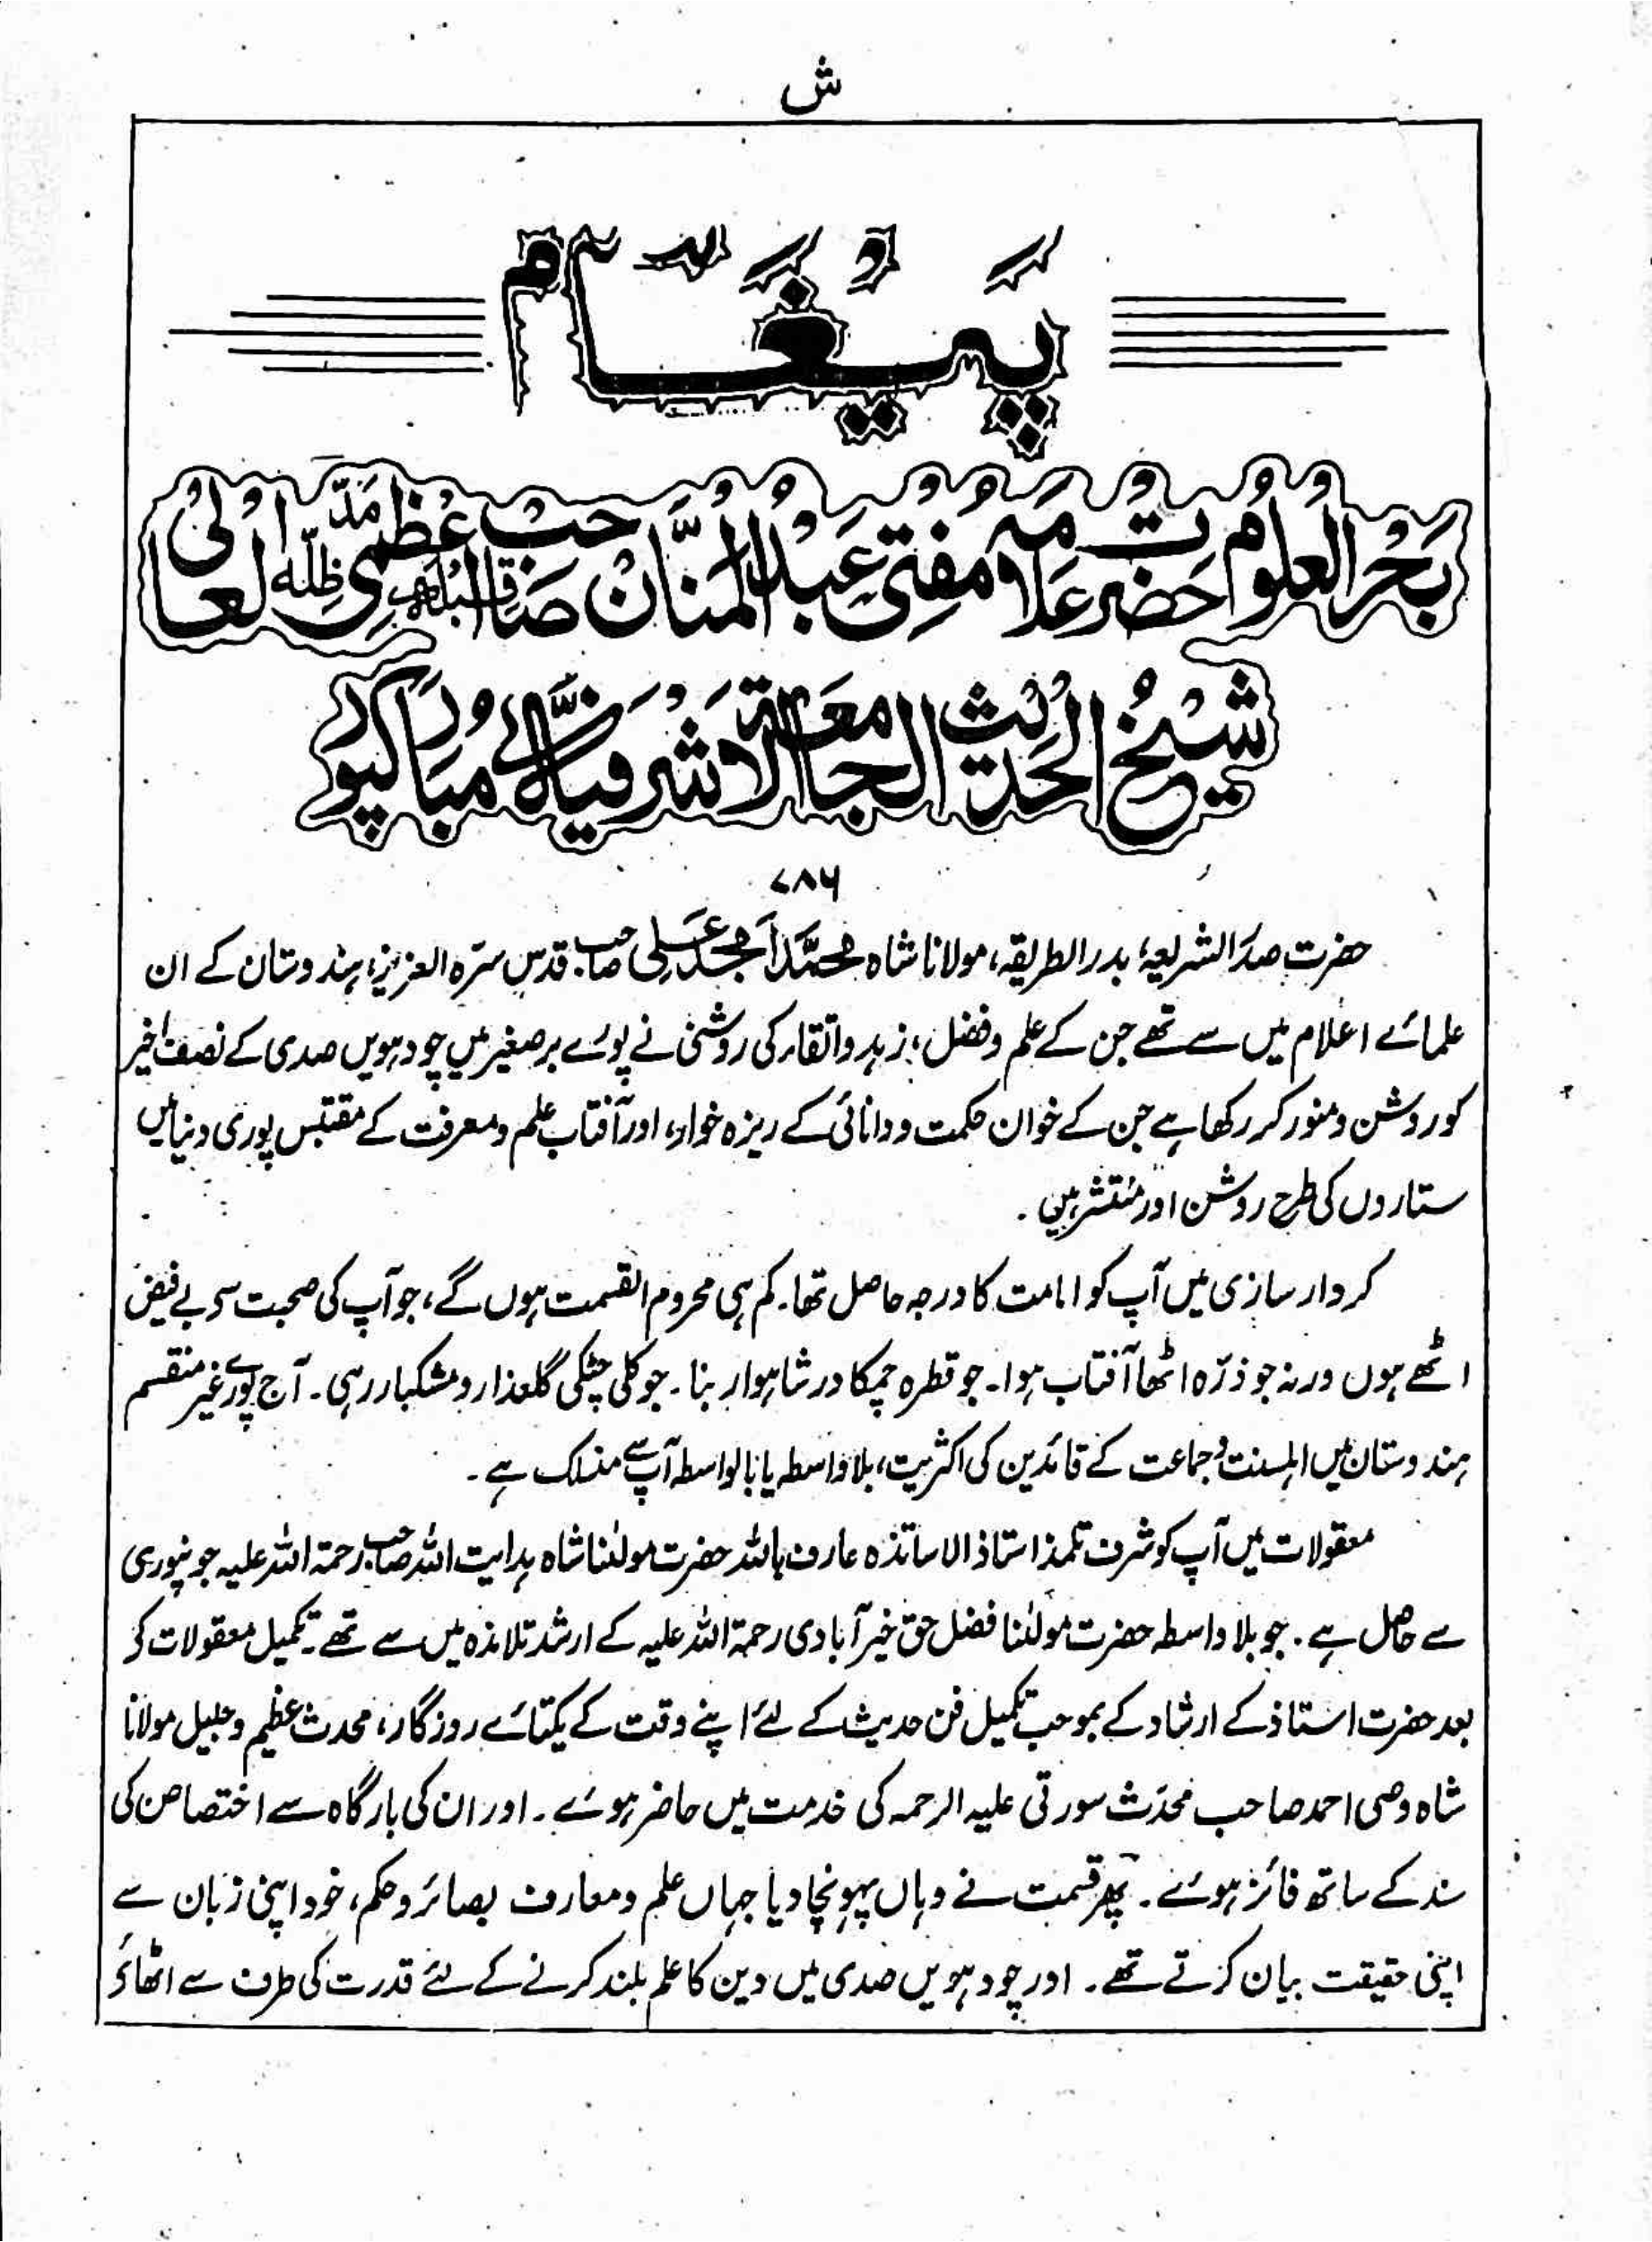 ش
پیغام
بحر العلوم حضرت علامہ مفتی عبد المنان صاحب قبلہ اعظمی مد ظلہ العالی
شیخ الحدیث الجامعۃ الاشرفیہ مبارکپور
۷۸۶
حضرت صدر الشریعہ، بدر الطریقہ، مولانا شاہ محمد امجد علی صاحب قدس سرہ العزیز، ہندوستان کے ان
علمائے اعلام میں سے تھے جن کے علم و فضل، زہد و اتقاء کی روشنی نے پورے برصغیر میں چودہویں صدی کے نصف اخیر
کو روشن و منور کر رکھا ہے جن کے خوان حکمت و دانائی کے ریزہ خوار، اور آفتاب علم و معرفت کے مقتبس پوری دنیا میں
ستاروں کی طرح روشن اور منتشر ہیں ۔
کردار سازی میں آپ کو امامت کا درجہ حاصل تھا۔ کم ہی محروم القسمت ہوں گے، جو آپ کی صحبت سے بے فیض
اٹھے ہوں ورنہ جو ذرّہ اٹھا آفتاب ہوا۔ جو قطرہ چمکا در شاہوار بنا۔ جو کلی چٹکی گلعذار و مشکبار رہی۔ آج پورے غیر منقسم
ہندوستان میں اہلسنت و جماعت کے قائدین کی اکثریت، بلا واسطہ یا بالواسطہ آپ سے منسلک ہے ۔
معقولات میں آپ کو شرف تلمذ استاذ الاساتذہ عارف باللہ حضرت مولٰنا شاہ ہدایت اللہ صاحب رحمۃ اللہ علیہ جونپوری
سے حاصل ہے ۔ جو بلا واسطہ حضرت مولٰنا فضل حق خیرآبادی رحمۃ اللہ علیہ کے ارشد تلامذہ میں سے تھے۔ تکمیل معقولات کے
بعد حضرت استاذ کے ارشاد کے بموجب تکمیل فن حدیث کے لئے اپنے وقت کے یکتائے روزگار، محدث عظیم و جلیل مولانا
شاہ وصی احمد صاحب محدّث سورتی علیہ الرحمہ کی خدمت میں حاضر ہوئے ۔ اور ان کی بارگاہ سے اختصاص کی
سند کے ساتھ فائز ہوئے ۔ پھر قسمت نے وہاں پہونچا دیا جہاں علم و معارف بصائر و حکم، خود اپنی زبان سے
اپنی حقیقت بیان کرتے تھے ۔ اور چودہویں صدی میں دین کا علم بلند کرنے کے لئے قدرت کی طرف سے اٹھائے